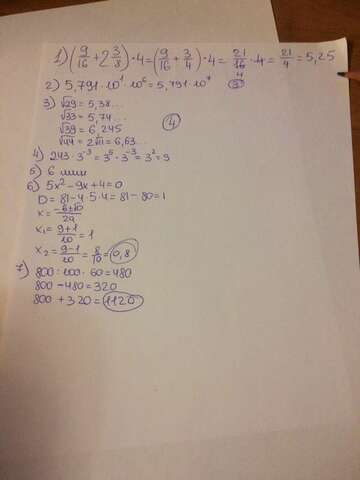 1) (9/16 + 2 3/8) · 4 = (9/16 + 3/4) · 4 = 21/16 · 4 = 21/4 = 5,25
4
2) 5,791 · 10¹ · 10⁶ = 5,791 · 10⁷ 3
3) √29 = 5,38...
√33 = 5,74...
√39 = 6,245 4
√44 = 2√11 = 6,63...
4) 243 · 3⁻³ = 3⁵ · 3⁻³ = 3² = 9
5) 6 мин
6) 5x² - 9x + 4 = 0
D = 81 - 4 · 5 · 4 = 81 - 80 = 1
x = -b±√D/2a
x₁ = 9+1/10 = 1
x₂ = 9-1/10 = 8/10 = 0,8
7) 800 : 100 · 60 = 480
800 - 480 = 320
800 + 320 = 1120